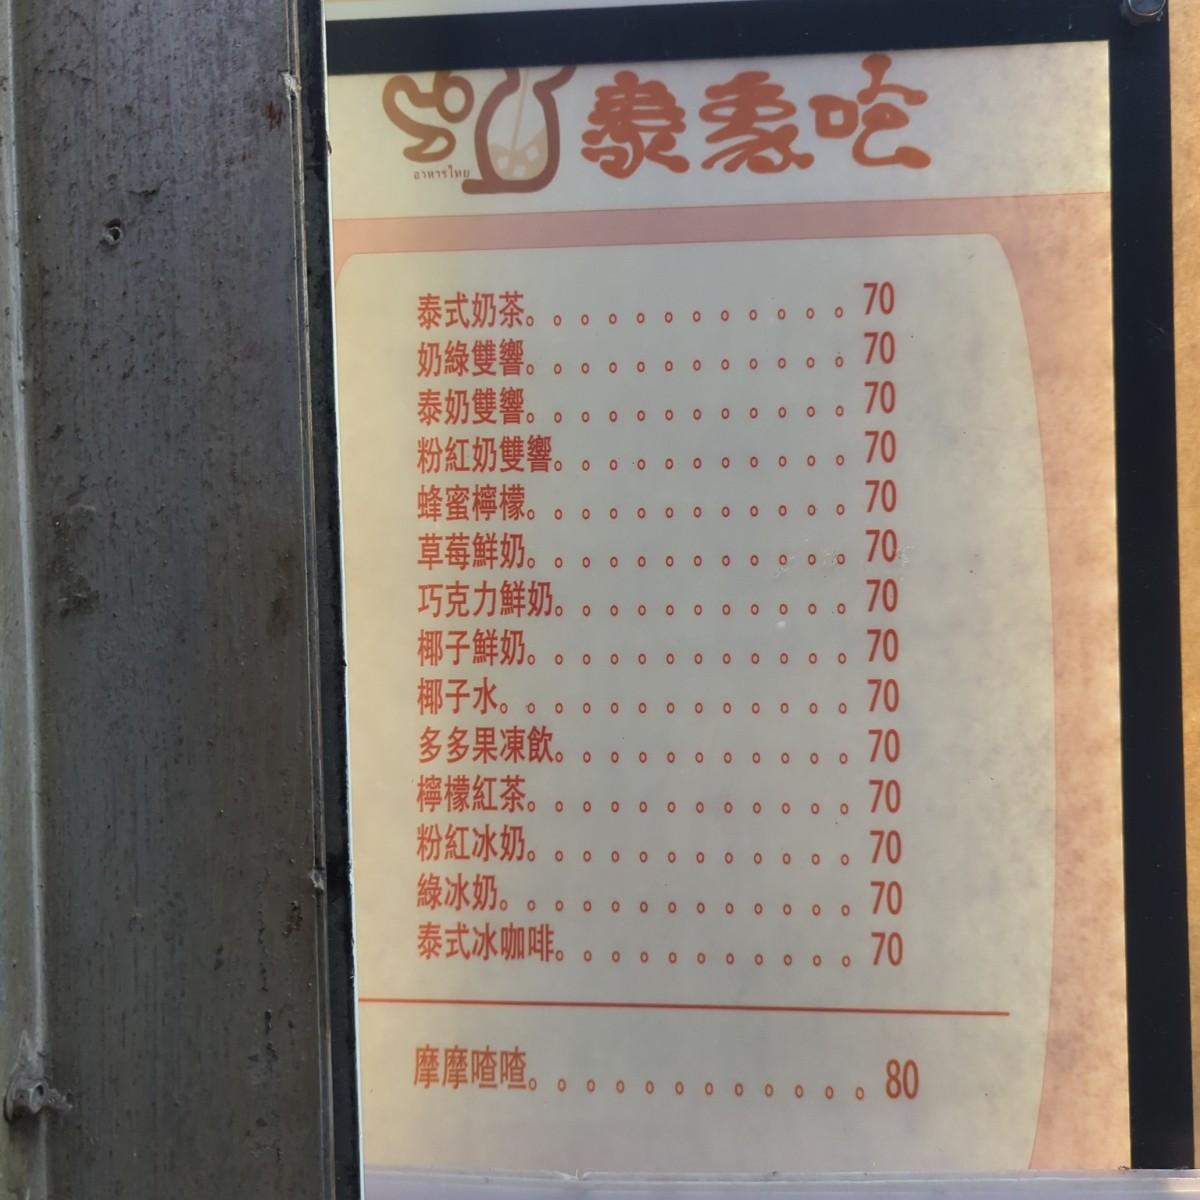 อาหารไทย
泰象哈
泰式奶茶。。。。。。。。。。。。70
奶綠雙響。。。。。。。。。。。。70
泰奶雙響。。。。。。。。。。。。70
粉紅奶雙響。。。。。。。。。。。70
蜂蜜檸檬。。。。。。。。。。。。70
草莓鮮奶。。。。。。。。。。。。70
巧克力鮮奶。。。。。。。。。。。70
椰子鮮奶。。。。。。。。。。。。70
椰子水。。。。。。。。。。。。。70
多多果凍飲。。。。。。。。。。。70
檸檬紅茶。。。。。。。。。。。。70
粉紅冰奶。。。。。。。。。。。。70
綠冰奶。。。。。。。。。。。。。70
泰式冰咖啡。。。。。。。。。。。70
摩摩喳喳。。。。。。。。。。。。80